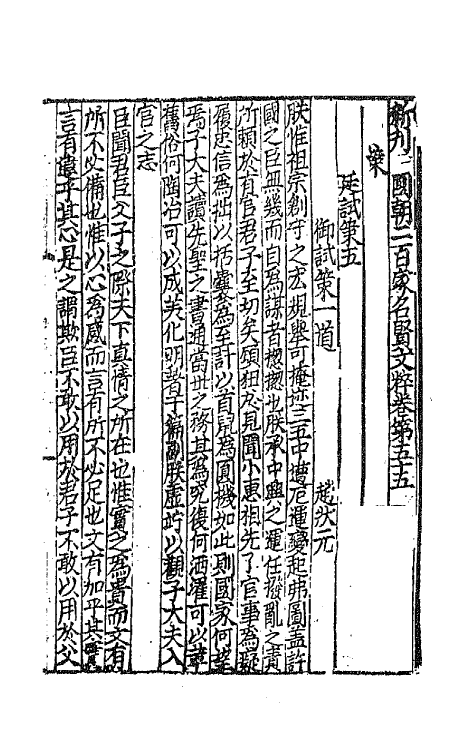 新刊國朝二百家名賢文粹卷第五十五
策
廷試策五
御試策一道 趙狀元
朕惟祖宗創守之宏規舉可掩迹三王中遭厄運變起弗圖盖許
國之臣無幾而自為謀者揔揔也朕承中興之運任撥亂之責
所頼於有官君子至切矣顧狃於見聞小惠祖先了官事為癡
履忠信為拙以括囊為至計以首鼠為圓機如此則國家何望
焉子大夫讀先聖之書通當世之務其為究復何洒濯可以革
舊俗何陶冶可以成美化明著于篇副朕虛竚以觀子大夫入
官之志
臣聞君臣父子之際天下真情之所在也惟實之為貴而文有
所不必備也惟以心為感而言有所不必足也文有加乎其實
言有遺乎其心是之謂欺臣不敢以用於君子不敢以用於父